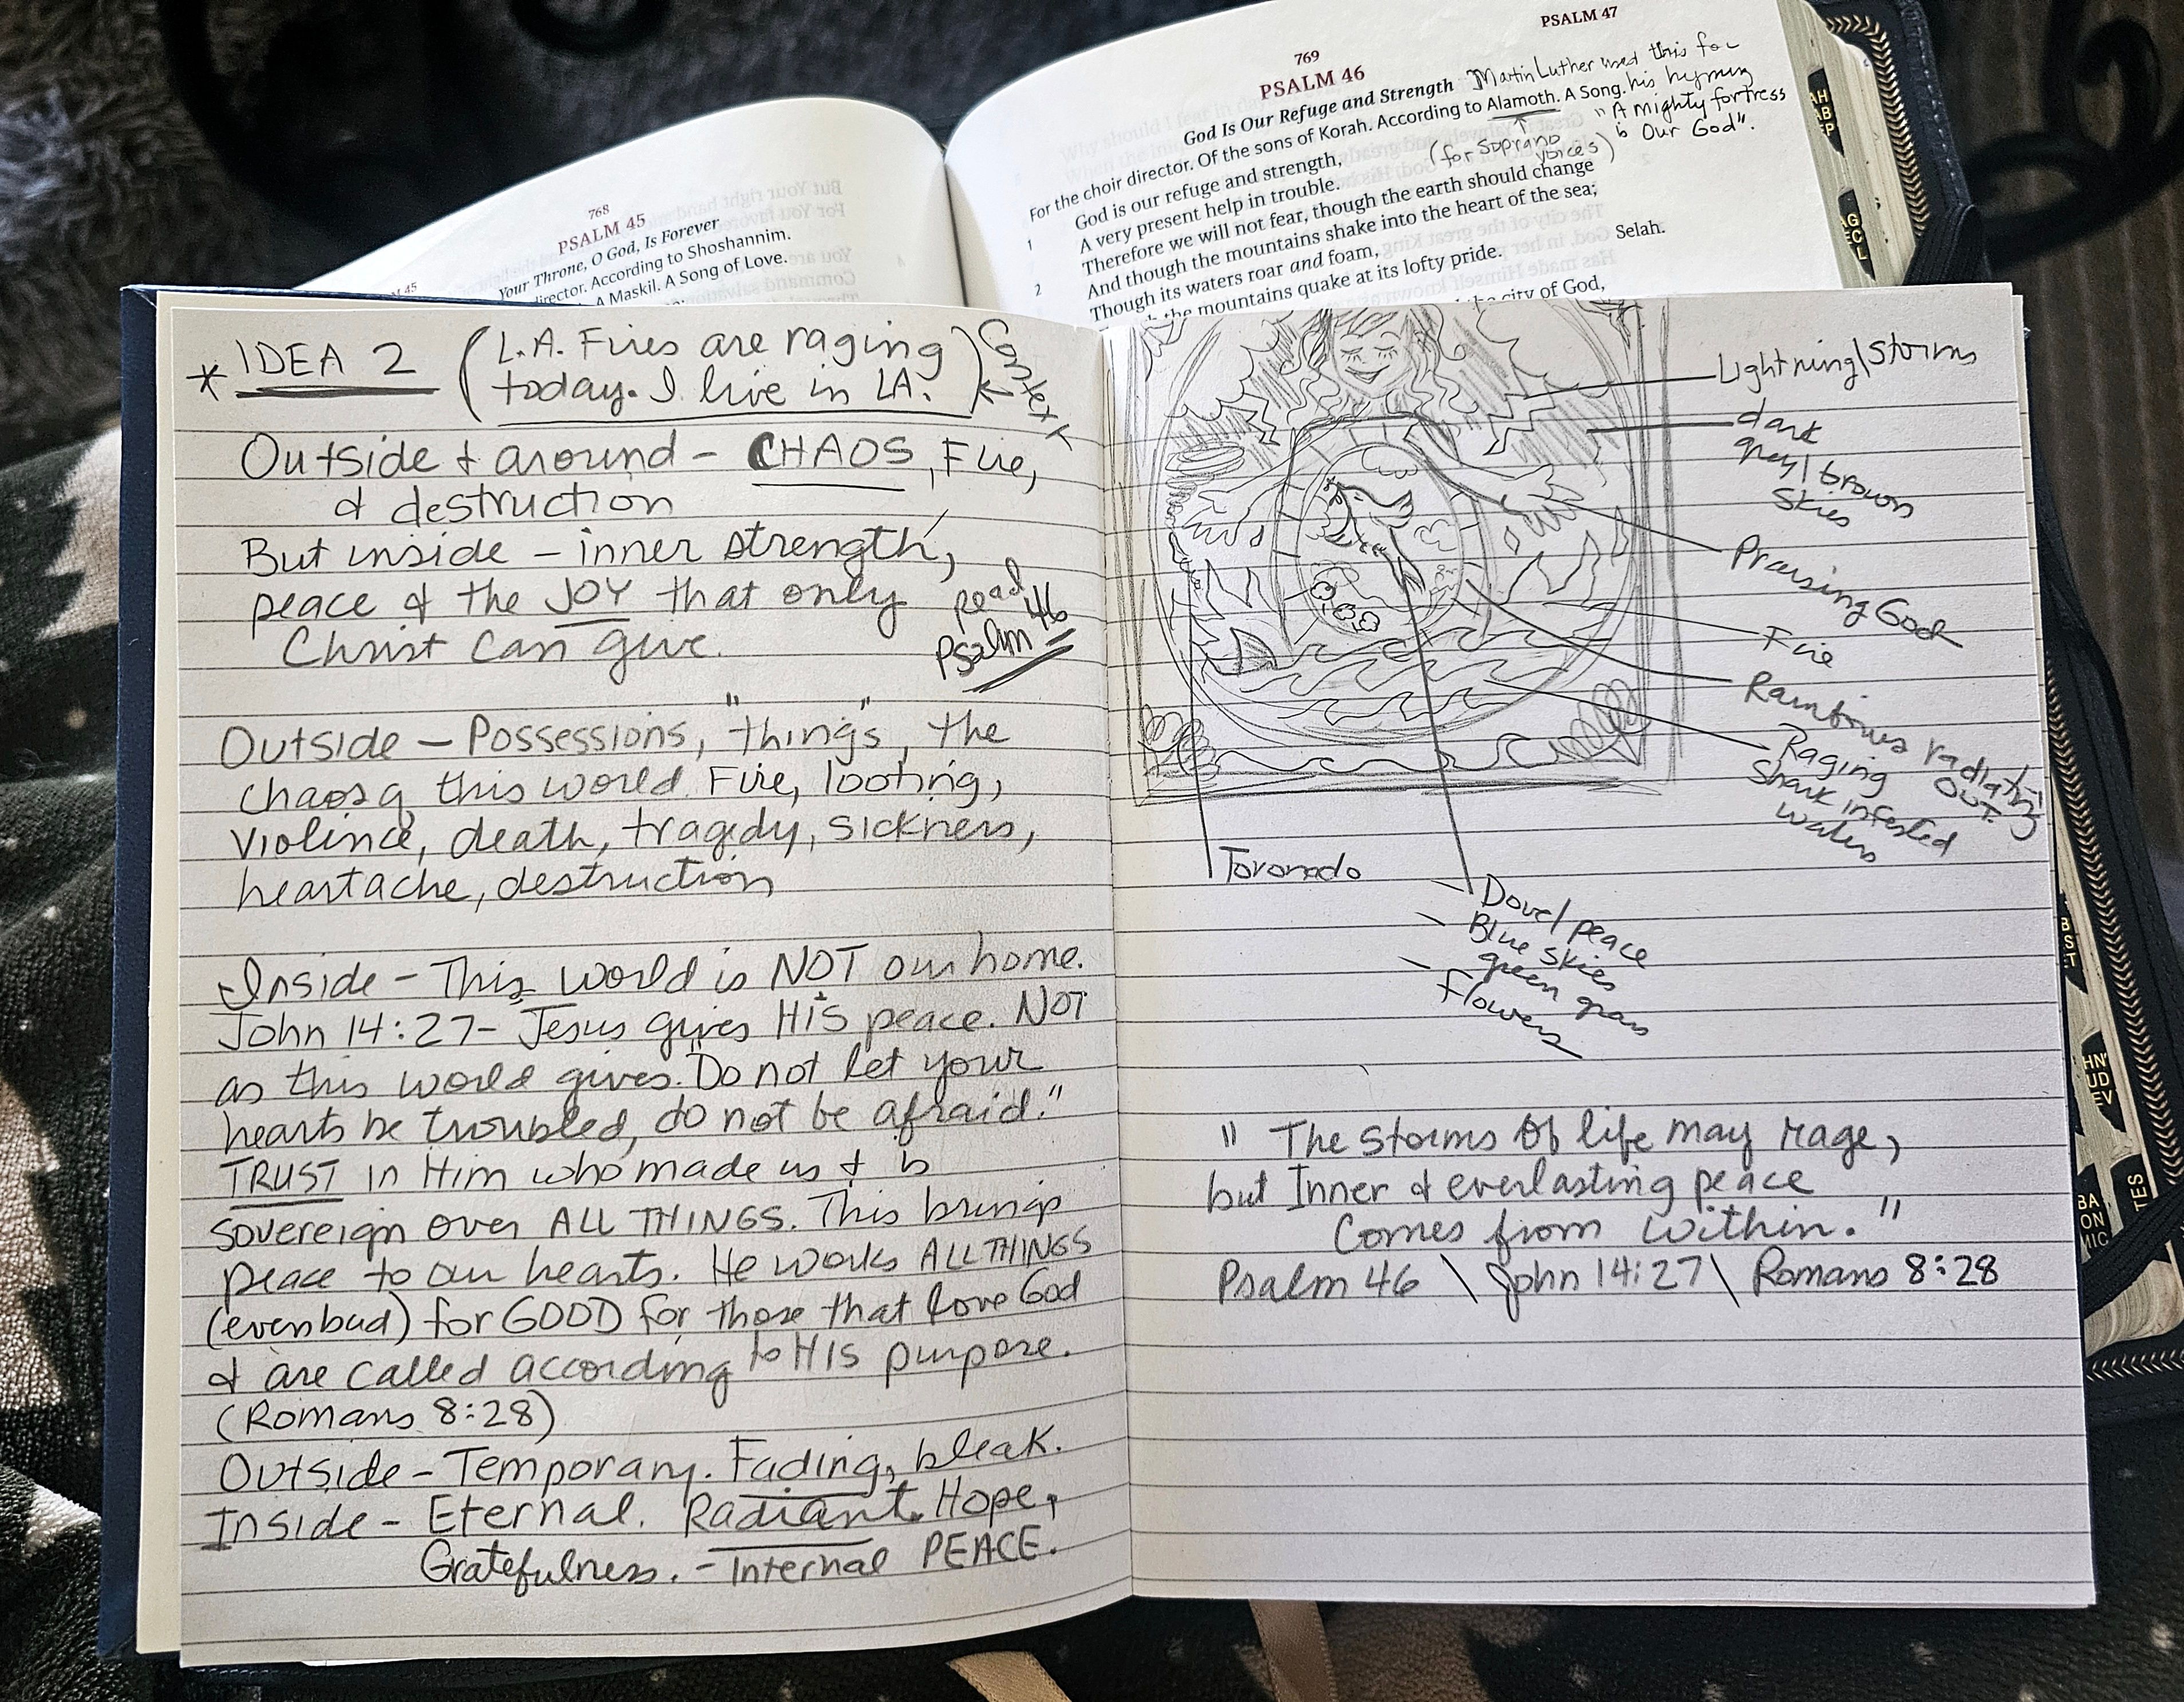 PSALM 47
769
PSALM 46
God Is Our Refuge and Strength
For the choir director. Of the sons of Korah. According to Alamoth. A Song.
Martin Luther used this for
his hymn
"A mighty fortress
is Our God".
(for soprano
voices)
God is our refuge and strength,
A very present help in trouble.
1
Therefore we will not fear, though the earth should change
And though the mountains shake into the heart of the sea;
2
Though its waters roar and foam,
the mountains quake at its lofty pride.
Selah.
city of God,
768
PSALM 45
Your Throne, O God, Is Forever
director. According to Shoshannim.
A Maskil. A Song of Love.
45
* IDEA 2 (L.A. Fires are raging
today. I live in LA.)
Context
Outside & around - CHAOS, Fire,
& destruction
But inside - inner strength,
peace & the JOY that only
Christ can give.
read
Psalm 46
Outside - Possessions, "things", the
chaos of this world. Fire, looting,
violince, death, tragedy, sickness,
heartache, destruction
Inside - This world is NOT our home.
John 14:27- Jesus gives HIS peace. NOT
as this world gives. "Do not let your
hearts be troubled, do not be afraid."
TRUST in Him who made us & is
sovereign over ALL THINGS. This brings
peace to our hearts. He works ALL THINGS
(even bad) for GOOD for those that love God
& are called according to HIS purpose.
(Romans 8:28)
Outside - Temporary. Fading, bleak.
Inside - Eternal. Radiant. Hope,
Gratefulness. - Internal PEACE.
Lightning\Storms
dark
grey/brown
Skies
Praising God
Fire
Rainbows radiating
OUT.
Raging
Shark infested
waters
Toronado
Dove/peace
Blue skies
green grass
flowers
"The storms of life may rage,
but Inner & everlasting peace
Comes from within."
Psalm 46 \ John 14:27 \ Romans 8:28
AH
AB
EP
AG
EC
L
HN'
UD
EV
BA
ON
MIC
TES